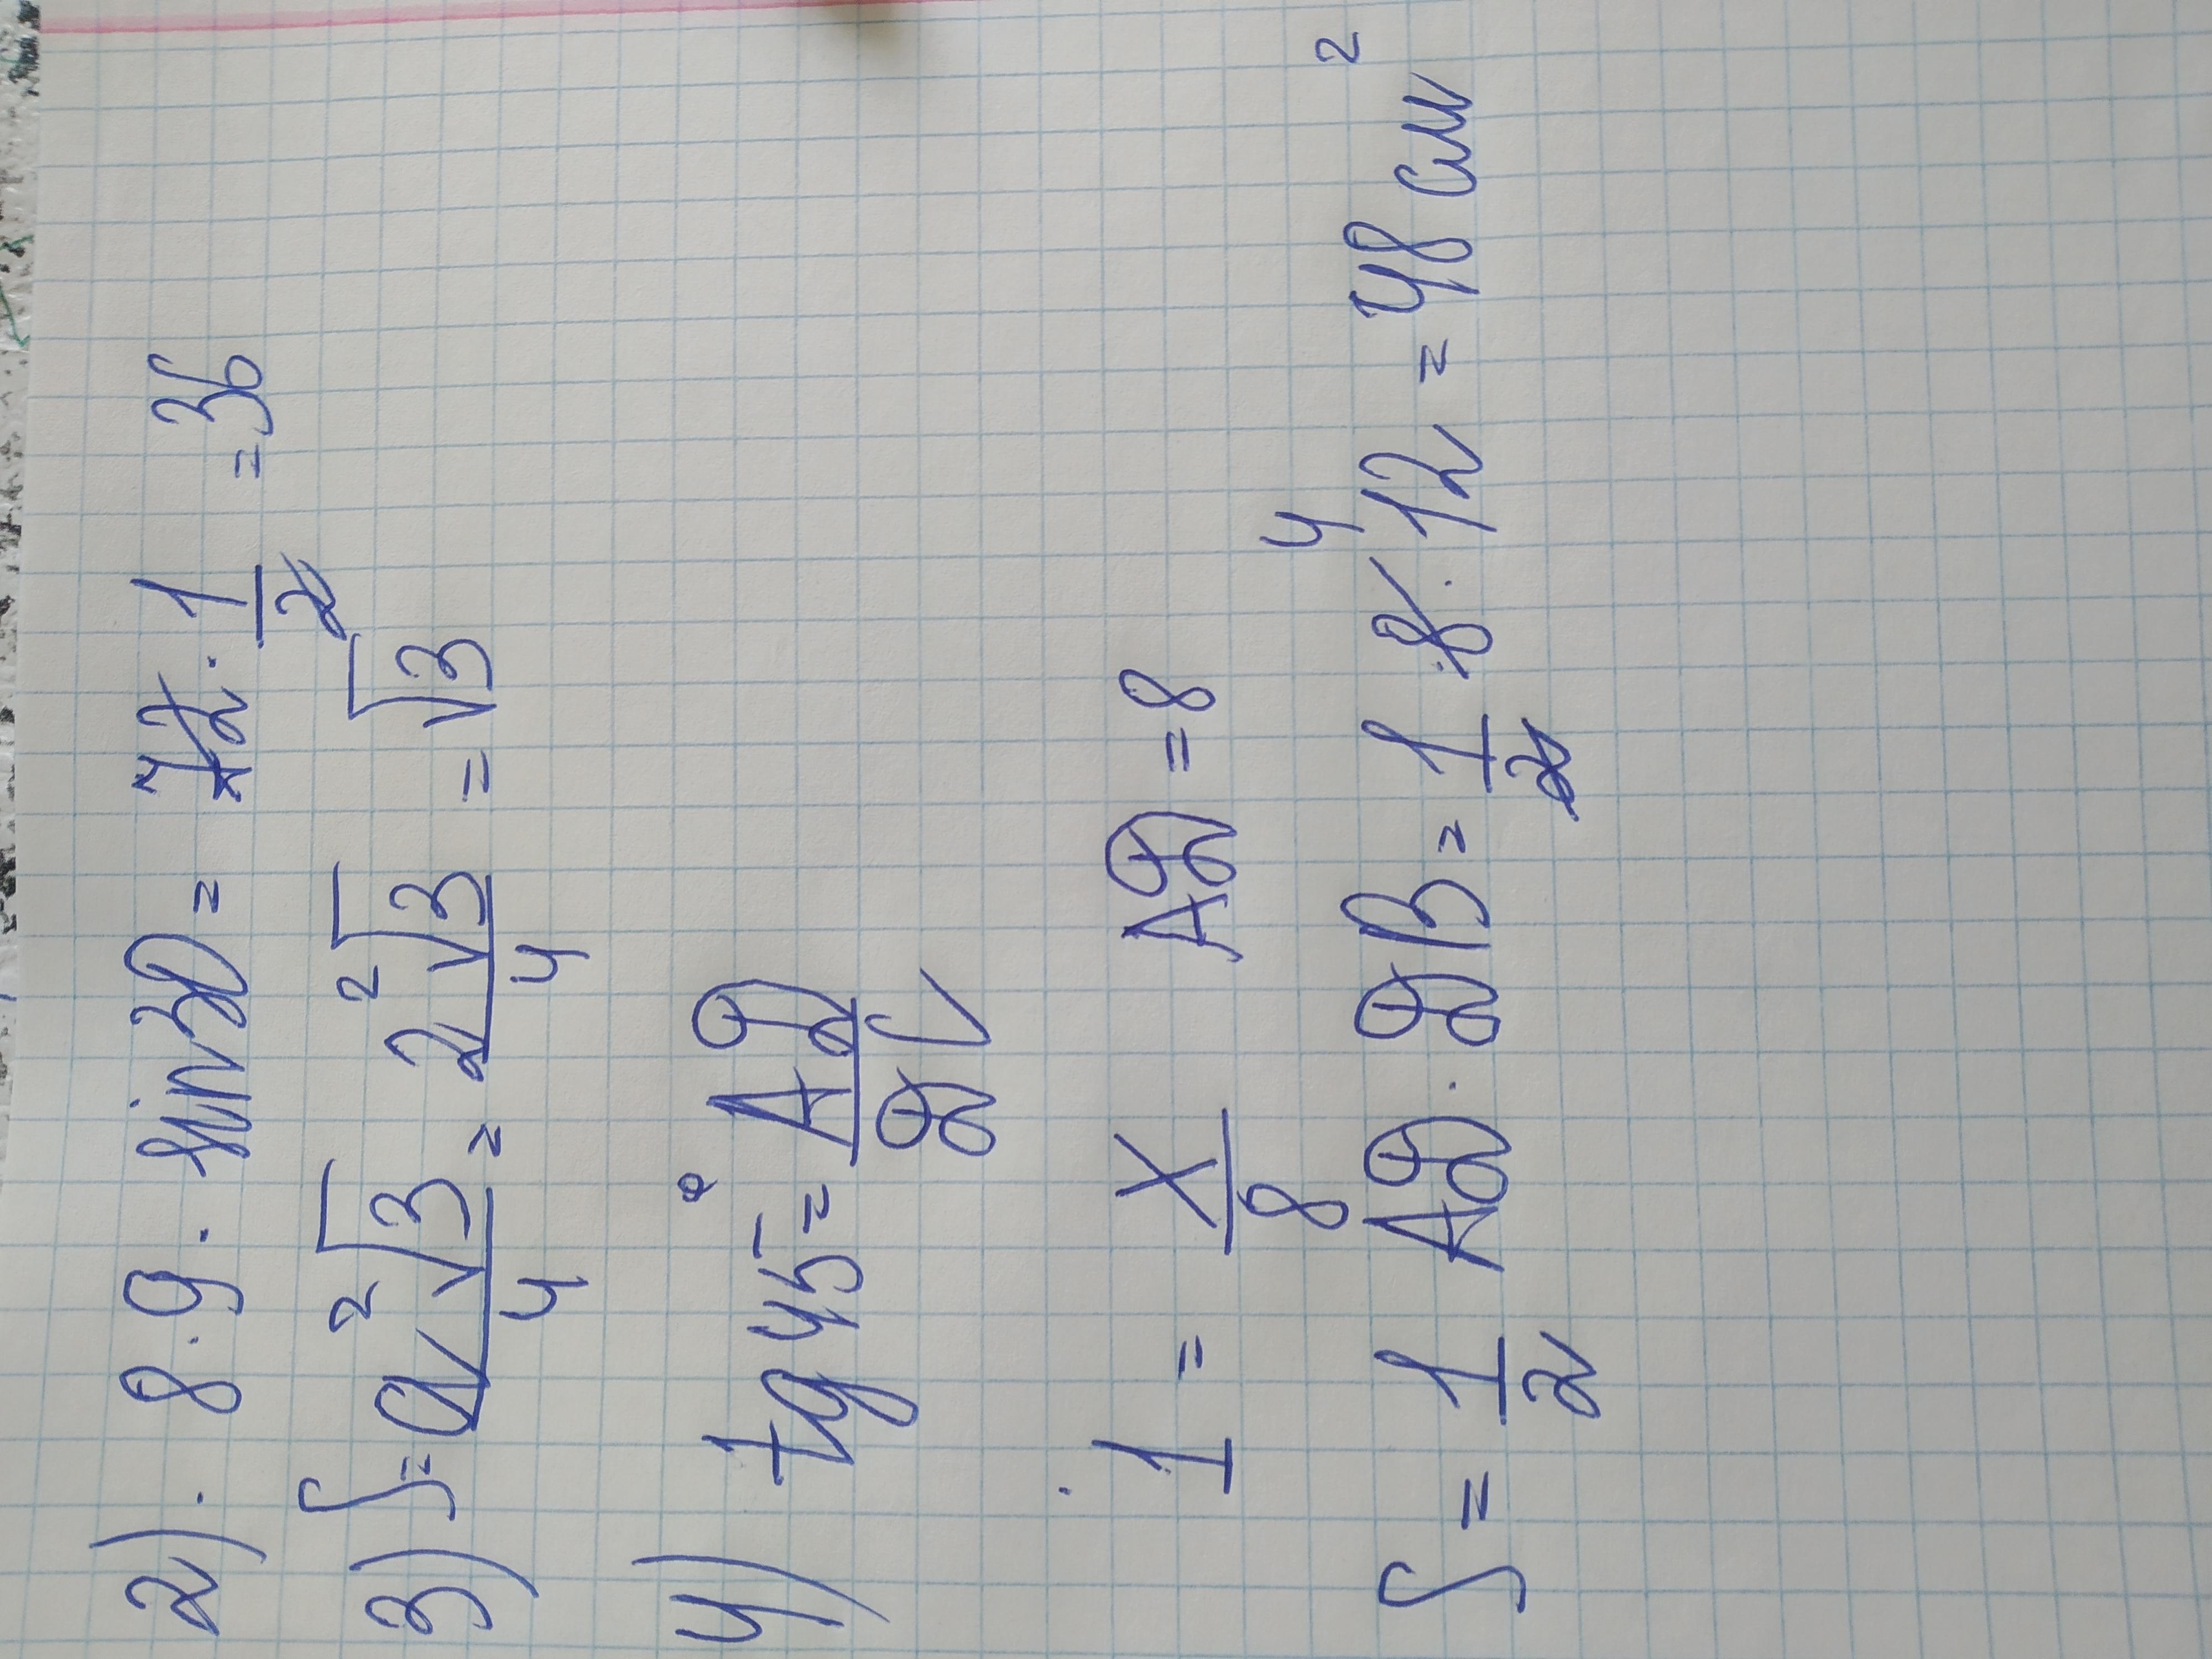 2). 8·9·sin30 = 72·1/2 = 36
3) S = a²√3/4 = 2²√3/4 = √3
4) tg45° = AD/DC
1 = x/8 AD = 8
S = 1/2 AD · DB = 1/2 · 8 · 12 = 48 см²